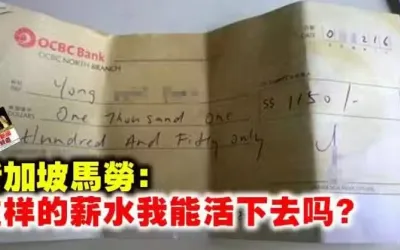 OCBC Bank
OCBC NORTH BRANCH
0 0216
Yong
DOLLARS One Thousand One S$ 1150/-
Hundred And Fifty only
加坡馬勞:
样的薪水我能活下去吗?